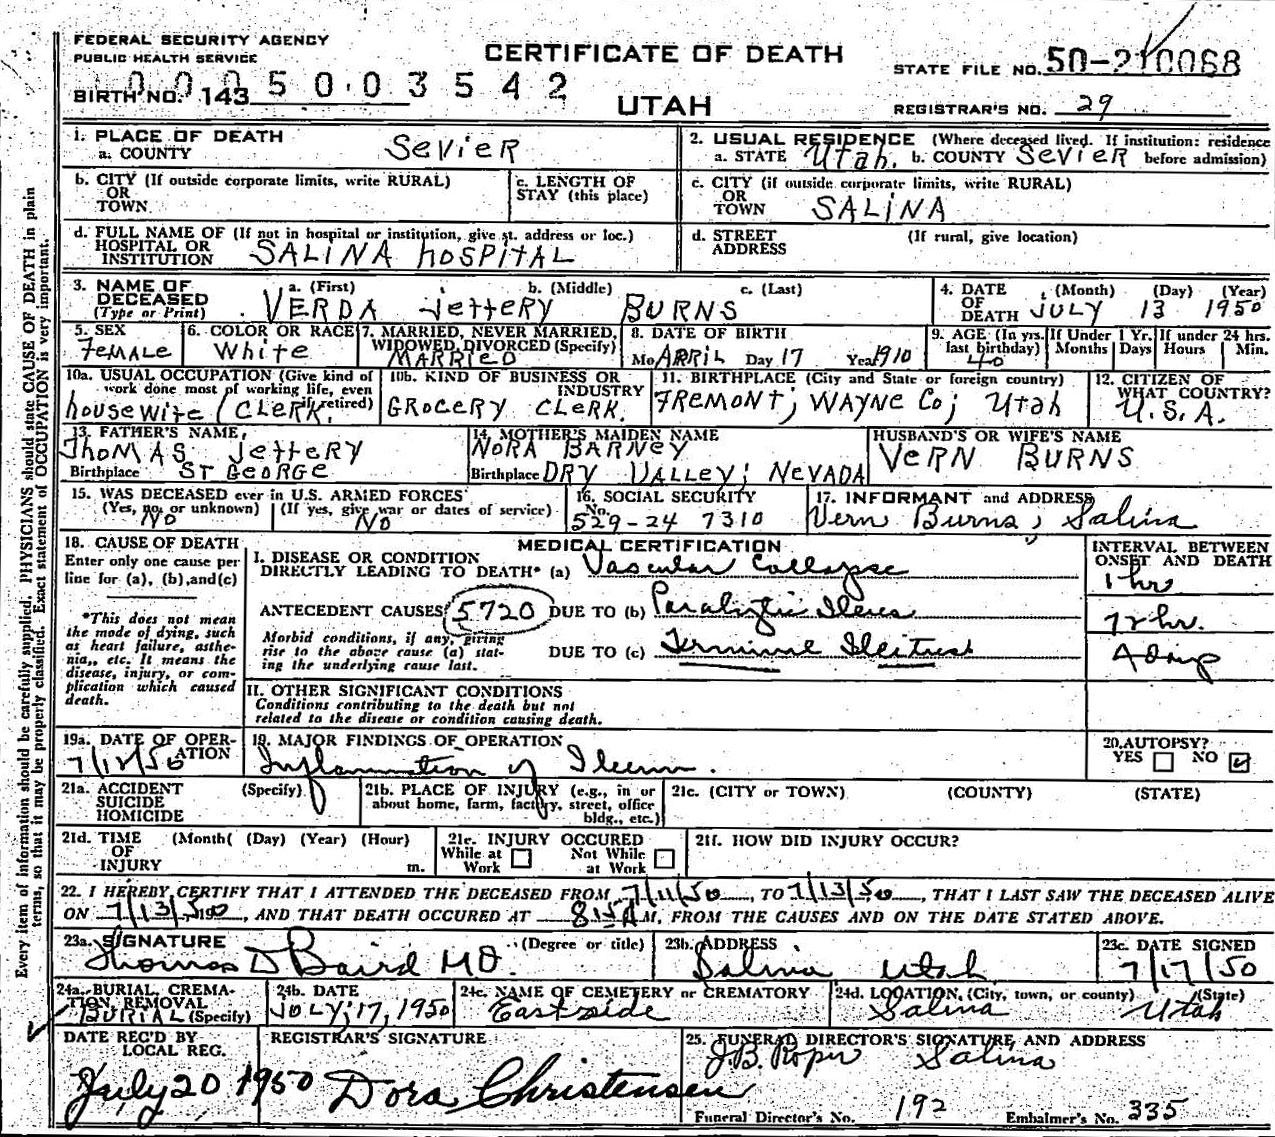 FEDERAL SECURITY AGENCY
PUBLIC HEALTH SERVICE
CERTIFICATE OF DEATH
UTAH
STATE FILE NO. 50-210068
0005003542
BIRTH NO. 143
REGISTRAR'S NO. 29
1. PLACE OF DEATH
a. COUNTY SEVIER
2. USUAL RESIDENCE (Where deceased lived. If institution: residence
a. STATE Utah. b. COUNTY SEVIER before admission)
b. CITY (If outside corporate limits, write RURAL)
OR
TOWN
c. LENGTH OF
STAY (this place)
c. CITY (if outside corporate limits, write RURAL)
OR
TOWN SALINA
d. FULL NAME OF (If not in hospital or institution, give st. address or loc.)
HOSPITAL OR
INSTITUTION SALINA HOSPITAL
d. STREET (If rural, give location)
ADDRESS
3. NAME OF a. (First) b. (Middle) c. (Last)
DECEASED
(Type or Print) VERDA Jeffery BURNS
4. DATE (Month) (Day) (Year)
OF
DEATH JULY 13 1950
5. SEX
FEMALE
6. COLOR OR RACE
White
7. MARRIED, NEVER MARRIED,
WIDOWED, DIVORCED (Specify)
MARRIED
8. DATE OF BIRTH
Mo APRIL Day 17 Year 1910
9. AGE (In yrs. last birthday) 40
If Under 1 Yr. Months Days
If under 24 hrs. Hours Min.
10a. USUAL OCCUPATION (Give kind of
work done most of working life, even
if retired)
housewife / CLERK
10b. KIND OF BUSINESS OR
INDUSTRY
GROCERY CLERK.
11. BIRTHPLACE (City and State or foreign country)
FREMONT; WAYNE Co; Utah
12. CITIZEN OF
WHAT COUNTRY?
U.S.A.
13. FATHER'S NAME,
THOMAS Jeffery
Birthplace ST GEORGE
14. MOTHER'S MAIDEN NAME
NORA BARNEY
Birthplace DRY VALLEY; NEVADA
HUSBAND'S OR WIFE'S NAME
VERN BURNS
15. WAS DECEASED ever in U.S. ARMED FORCES
(Yes, no, or unknown) (If yes, give war or dates of service)
No No
16. SOCIAL SECURITY
No.
529-24 7310
17. INFORMANT and ADDRESS
Vern Burns, Salina
18. CAUSE OF DEATH
Enter only one cause per
line for (a), (b), and (c)
*This does not mean
the mode of dying, such
as heart failure, asthe-
nia,, etc. It means the
disease, injury, or com-
plication which caused
death.
MEDICAL CERTIFICATION
I. DISEASE OR CONDITION
DIRECTLY LEADING TO DEATH* (a) Vascular Collapse
ANTECEDENT CAUSES 5720 DUE TO (b) Paralytic Ileus
Morbid conditions, if any, giving
rise to the above cause (a) stat-
ing the underlying cause last.
DUE TO (c) Terminal Ileitis
INTERVAL BETWEEN
ONSET AND DEATH
1 hr
72 hr.
II. OTHER SIGNIFICANT CONDITIONS
Conditions contributing to the death but not
related to the disease or condition causing death.
19a. DATE OF OPER-
ATION
7/12/50
19. MAJOR FINDINGS OF OPERATION
Inflammation of Ileum.
20. AUTOPSY?
YES NO
21a. ACCIDENT (Specify)
SUICIDE
HOMICIDE
21b. PLACE OF INJURY (e.g., in or
about home, farm, factory, street, office
bldg., etc.)
21c. (CITY or TOWN) (COUNTY) (STATE)
21d. TIME (Month) (Day) (Year) (Hour)
OF
INJURY m.
21e. INJURY OCCURED
While at Work Not While at Work
21f. HOW DID INJURY OCCUR?
22. I HEREBY CERTIFY THAT I ATTENDED THE DECEASED FROM 7/11/50, TO 7/13/50, THAT I LAST SAW THE DECEASED ALIVE
ON 7/13/50 19, AND THAT DEATH OCCURED AT 815A M, FROM THE CAUSES AND ON THE DATE STATED ABOVE.
23a. SIGNATURE (Degree or title)
Thomas D Baird MD.
23b. ADDRESS
Salina Utah
23c. DATE SIGNED
7/17/50
24a. BURIAL, CREMA-
TION, REMOVAL
BURIAL (Specify)
24b. DATE
JULY, 17, 1950
24c. NAME OF CEMETERY or CREMATORY
Eastside
24d. LOCATION (City, town, or county) (State)
Salina Utah
DATE REC'D BY
LOCAL REG.
July 20 1950
REGISTRAR'S SIGNATURE
Dora Christensen
25. FUNERAL DIRECTOR'S SIGNATURE AND ADDRESS
J.B. Roper Salina
Funeral Director's No. 192 Embalmer's No. 335
Every item of information should be carefully supplied. PHYSICIANS should state CAUSE OF DEATH in plain
terms, so that it may be properly classified. Exact statement of OCCUPATION is very important.